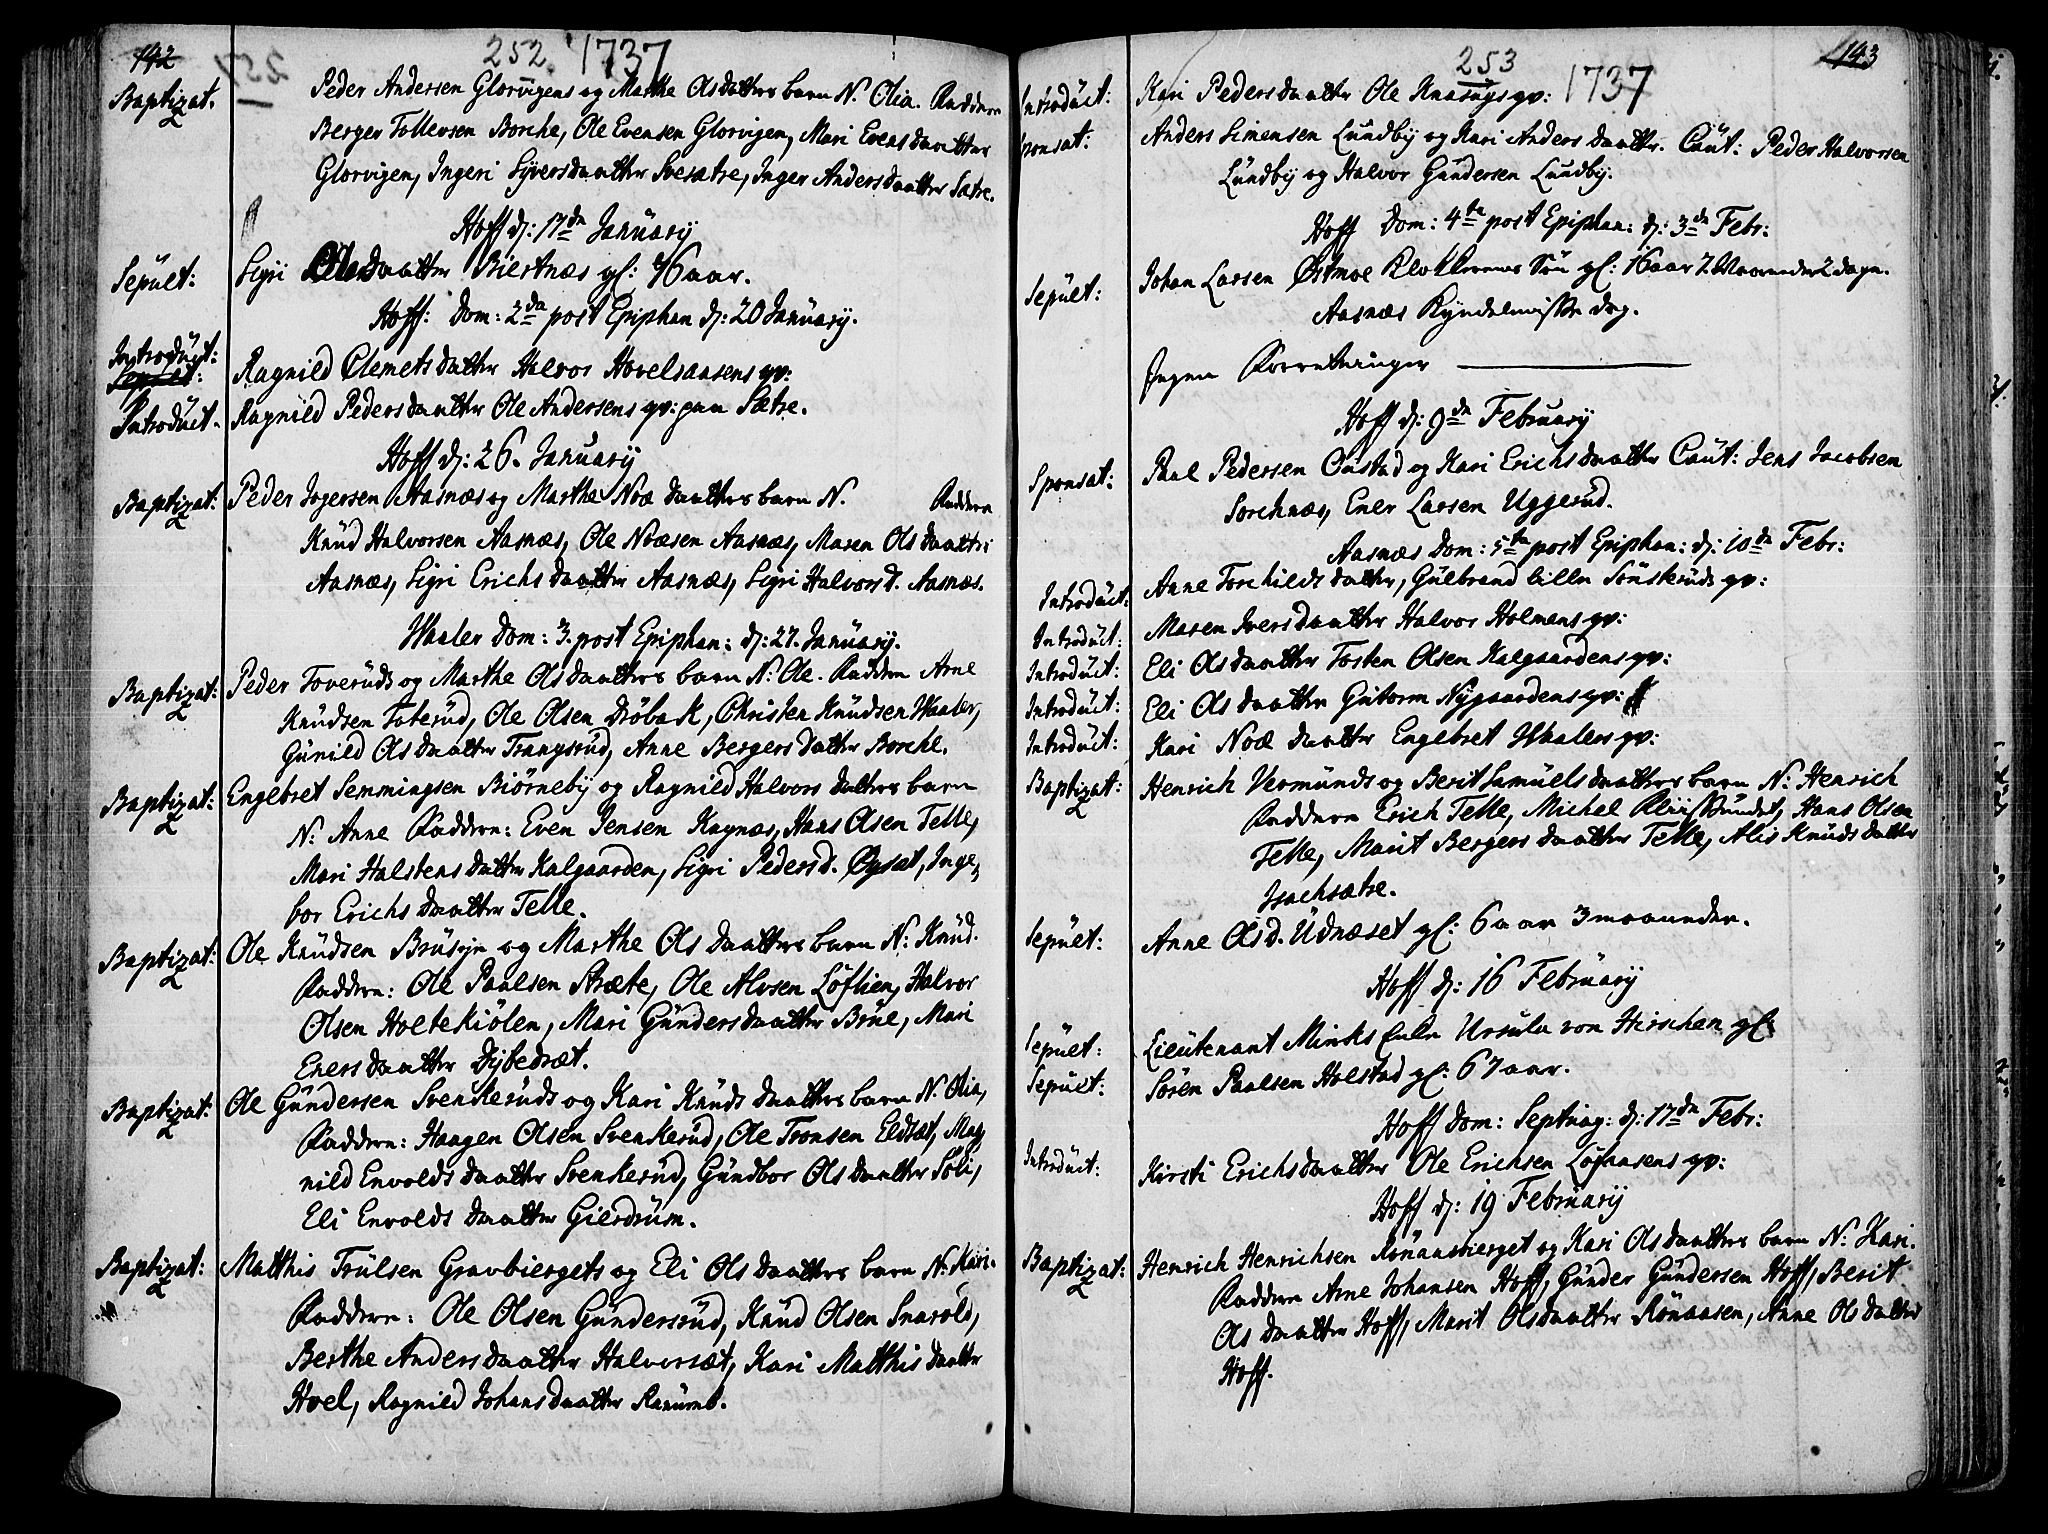 142
252. 1737
Baptizat. Peder Andersen Glorvigens og Marthe Olsdatters barn N. Olia. Faddere
Berger Tollevsen Borche, Ole Evensen Glorvigen, Mari Evensdaatter
Glorvigen, Ingeri Syversdaatter Svesætre, Inger Andersdaatter Sætre.
Hoff d: 17de January
Sepult: Sigri Olsdaatter Biertnæs gl: 76 aar.
Hoff: Dom: 2da post Epiphan d: 20 January.
Introduct: Ragnild Clemetsdatter Halvor Hovelsaasens qv:
Introduct. Ragnild Pedersdaatter Ole Andersens qv: paa Sætre.
Hoff d: 26. January
Baptizat: Peder Jogersen Aasnæs og Marthe Noæ daatters barn N. Faddere
Knud Halvorsen Aasnæs, Ole Noæsen Aasnæs, Maren Olsdaatter
Aasnæs, Sigri Erichsdaatter Aasnæs, Sigri Halvorsd. Aasnæs.
Waaler Dom: 3. post Epiphan: d: 27. January.
Baptizat: Peder Toveruds og Marthe Olsdaatters barn N: Ole. Faddere Arne
Knudsen Toterud, Ole Olsen Dröbak, Christen Knudsen Waaler,
Gunild Olsdaatter Trangsrud, Anne Bergersdatter Borche.
Baptizat: Engebret Semmingsen Biörneby og Ragnild Halvorsdatters barn
N: Anne Faddere: Even Jensen Knapnæs, Hans Olsen Telle,
Mari Halstensdatter Kalgaarden, Sigri Pedersd. Øysat, Inge,
bor Erichsdaatter Telle.
Baptizat: Ole Knudsen Brusyn og Marthe Olsdaatters barn N: Knud.
Faddere: Ole Paulsen Stræte, Ole Alvsen Löflien, Halvor
Olsen Holtekiölen, Mari Gundersdaatter Brue, Mari
Enersdaatter Dybedræt.
Baptizat: Ole Gundersen Svenkeruds og Kari Knudsdaatters barn N: Olia,
Faddere: Haagen Olsen Svenkerud, Ole Tronsen Eldset, Mag,
nild Envoldsdaatter Svenkerud, Gundbor Olsdaatter Söli,
Eli Envoldsdaatter Gierdrum.
Baptizat: Matthis Trulsen Gravbiergets og Eli Olsdaatters barn N: Kari.
Faddere: Ole Olsen Gundersrud, Knud Olsen Snarold,
Berthe Andersdaatter Halvorsæt, Kari Matthisdaatter
Hoel, Ragnild Johansdaatter Ranumb.
143
253 1737
Introduct: Kari Pedersdaatter Ole Knasugs qv:
Sponsat: Anders Simensen Lundby og Kari Andersdaatter. Caut: Peder Halvorsen
Lundby og Halvor Gundersen Lundby.
Hoff Dom: 4ta post Epiphan: d: 3de Febr:
Sepult: Johan Larsen Østmoe Klokkerens Sön gl: 16 aar 7 Maaneder 2 dage.
Aasnæs Kyndelmisse dag.
Ingen Forretninger
Hoff d: 9de February
Sponsat: Paul Pedersen Onstad og Kari Erichsdaatter Caut: Jens Jacobsen
Sorchnæs, Ener Larsen Uggerud.
Aasnæs Dom: 5ta post Epiphan: d: 10de Febr:
Introduct: Anne Torchildsdatter, Gulbrand lille Sönsteruds qv:
Introduct: Maren Iversdaatter Halvor Holmens qv:
Introduct: Eli Olsdaatter Tosten Olsen Kalgaardens qv:
Introduct: Eli Olsdaatter Gutorm Nygaardens qv:
Introduct: Kari Noæ daatter Engebret Waalers qv:
Baptizat: Henrich Vermunds og Berit Samuelsdaatters barn N: Henrich
Faddere Erich Telle, Michel, Hans Olsen
Telle, Marit Bergersdaatter Telle, Alis Knudsdatter
Isachsætre.
Sepult: Anne Olsd. Udnæset gl: 6 aar 3 maaneder.
Hoff d: 16 February
Sepult: Lieutenant Minks Enke Ursula von Hirschen gl:
Sepult: Sören Paulsen Holstad gl: 67 aar.
Hoff Dom: Septuag: d: 17de Febr:
Introduct: Kirsti Erichsdaatter Ole Erichsen Löfaasens qv:
Hoff d: 19 February
Baptizat: Henrich Henrichsen Rönaasbierget og Kari Olsdaatters barn N: Kari.
Faddere Arne Johansen Hoff, Gunder Gundersen Hoff, Berit
Olsdaatter Hoff, Marit Olsdaatter Rönaasen, Anne Olsdatter
Hoff.